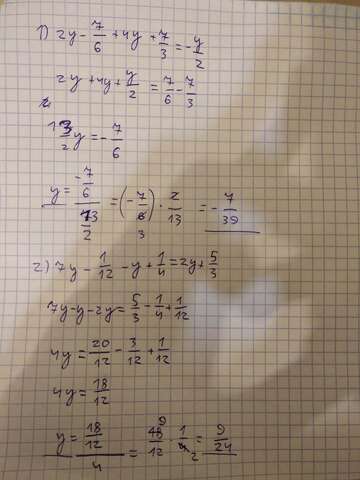 1) 2y - 7/6 + 4y + 7/3 = - y/2
2y + 4y + y/2 = 7/6 - 7/3
13/2 y = - 7/6
y = (-7/6)/(13/2) = (-7/6) · 2/13 = - 7/39
3
2) 7y - 1/12 - y + 1/4 = 2y + 5/3
7y - y - 2y = 5/3 - 1/4 + 1/12
4y = 20/12 - 3/12 + 1/12
4y = 18/12
y = (18/12)/4 = 18/12 · 1/4 = 9/24
9
2